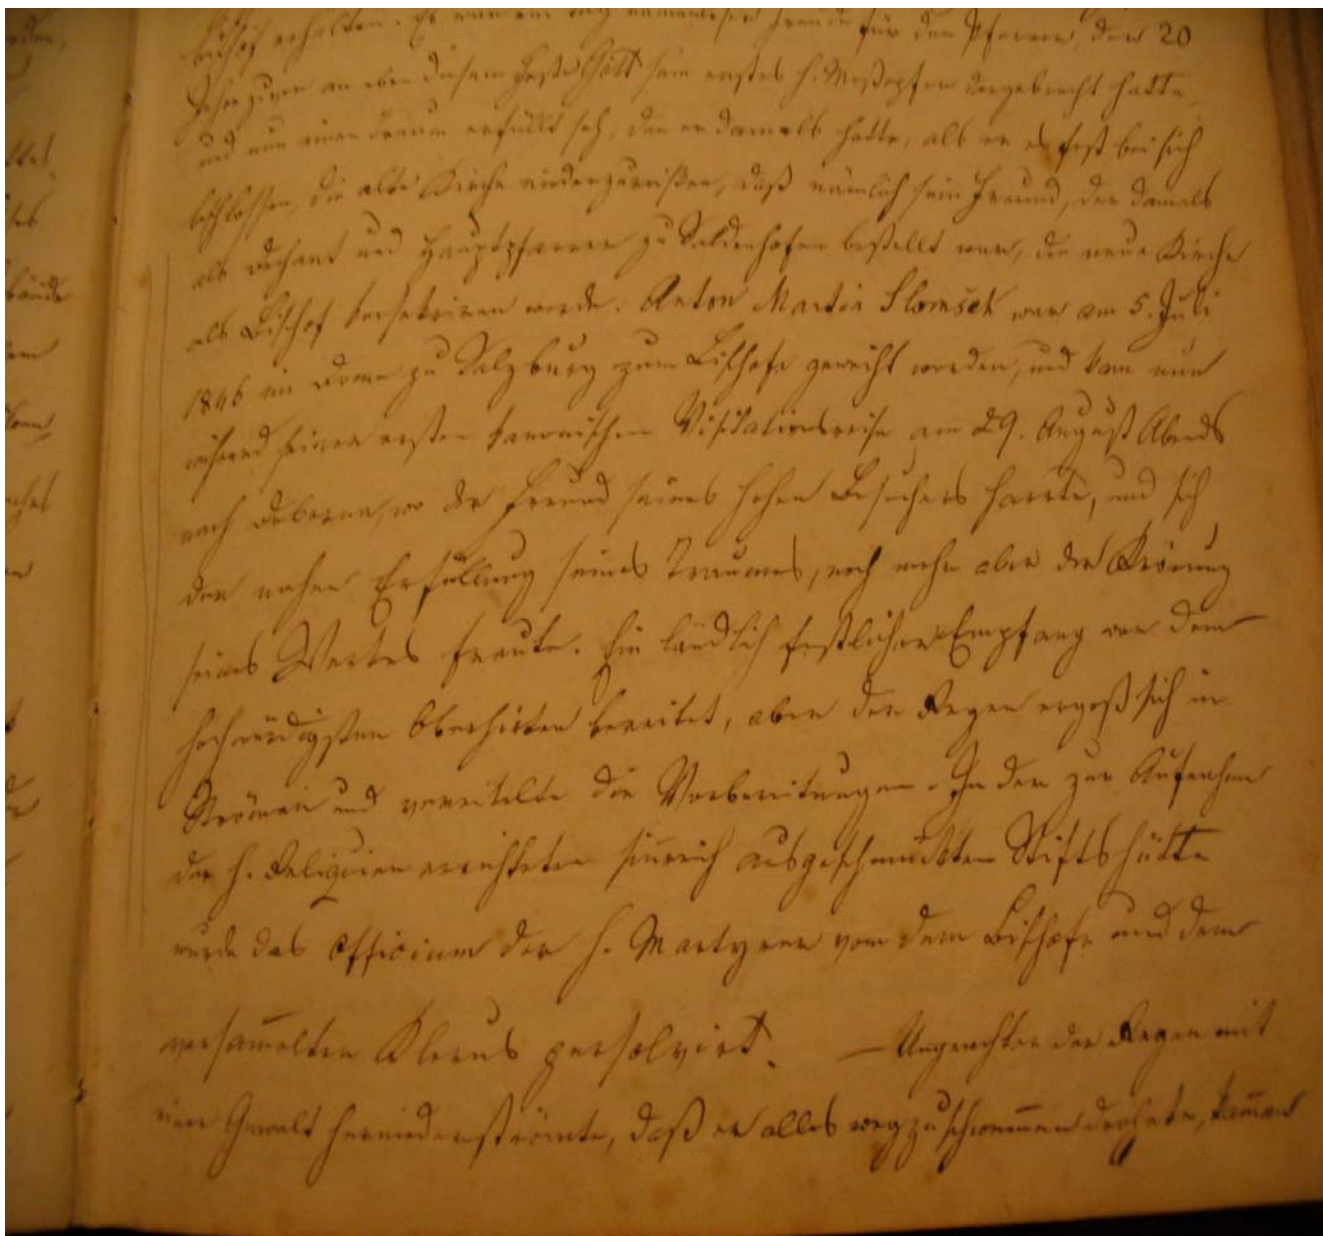 Bischof erhalten. Es war ein Tag namenloser Freude für den Pfarrer, der 20
Jahre zuvor an eben diesem Feste Gott sein erstes h. Meßopfer dargebracht hatte,
und nun einen Traum erfüllt sah, den er damals hatte, als er es fest bei sich
beschlossen, die alte Kirche niederzureißen, daß nämlich sein Freund, der damals
als Dechant und Hauptpfarrer zu Saldenhofen bestellt war, die neue Kirche
als Bischof konsekriren werde. Anton Martin Slomšek war am 5. Juli
1846 im Dome zu Salzburg zum Bischofe geweiht worden, und kam nun
während seiner ersten kanonischen Visitationsreise am 29. August Abends
nach Doberna, wo der Freund seines hohen Besuches harrte, und sich
der nahen Erfüllung seines Traumes, noch mehr aber der Krönung
seines Werkes freute. Ein ländlich festlicher Empfang war dem
hochwürdigsten Oberhirten bereitet, aber der Regen ergoß sich in
Strömen und vereitelte die Vorbereitungen. In der zur Aufnahme
der h. Reliquien errichteten sinnreich ausgeschmückten Stiftshütte
wurde das Officium der h. Martyrer von dem Bischofe und dem
versam̅elten Klerus persolvirt. — Ungeachtet der Regen mit
einer Gewalt herniederströmte, daß er alles wegzuschwem̅en drohete, kam̅en